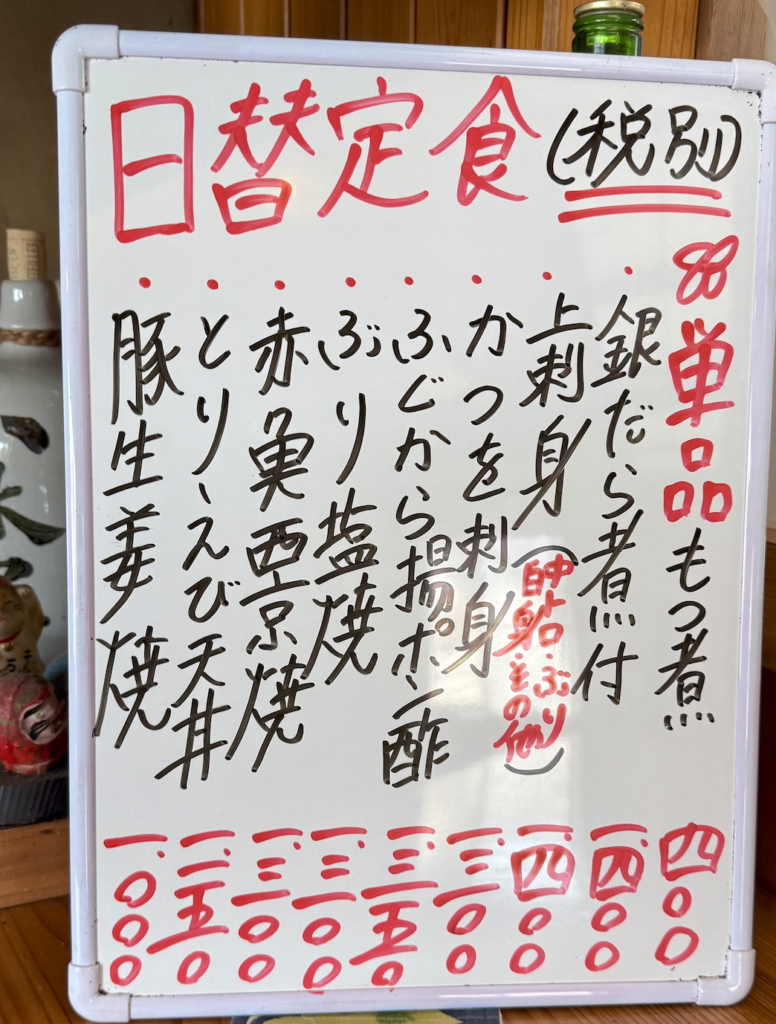 日替定食(税別)
単品 もつ煮 四〇〇
・銀だら煮付 一、四〇〇
・上刺身(中トロ・ぶり白身その他) 一、四〇〇
・かつを刺身 一、三〇〇
・ふぐから揚ポン酢 一、三五〇
・ぶり塩焼 一、三〇〇
・赤魚西京焼 一、三〇〇
・とり、えび天丼 一、二五〇
・豚生姜焼 一、〇〇〇